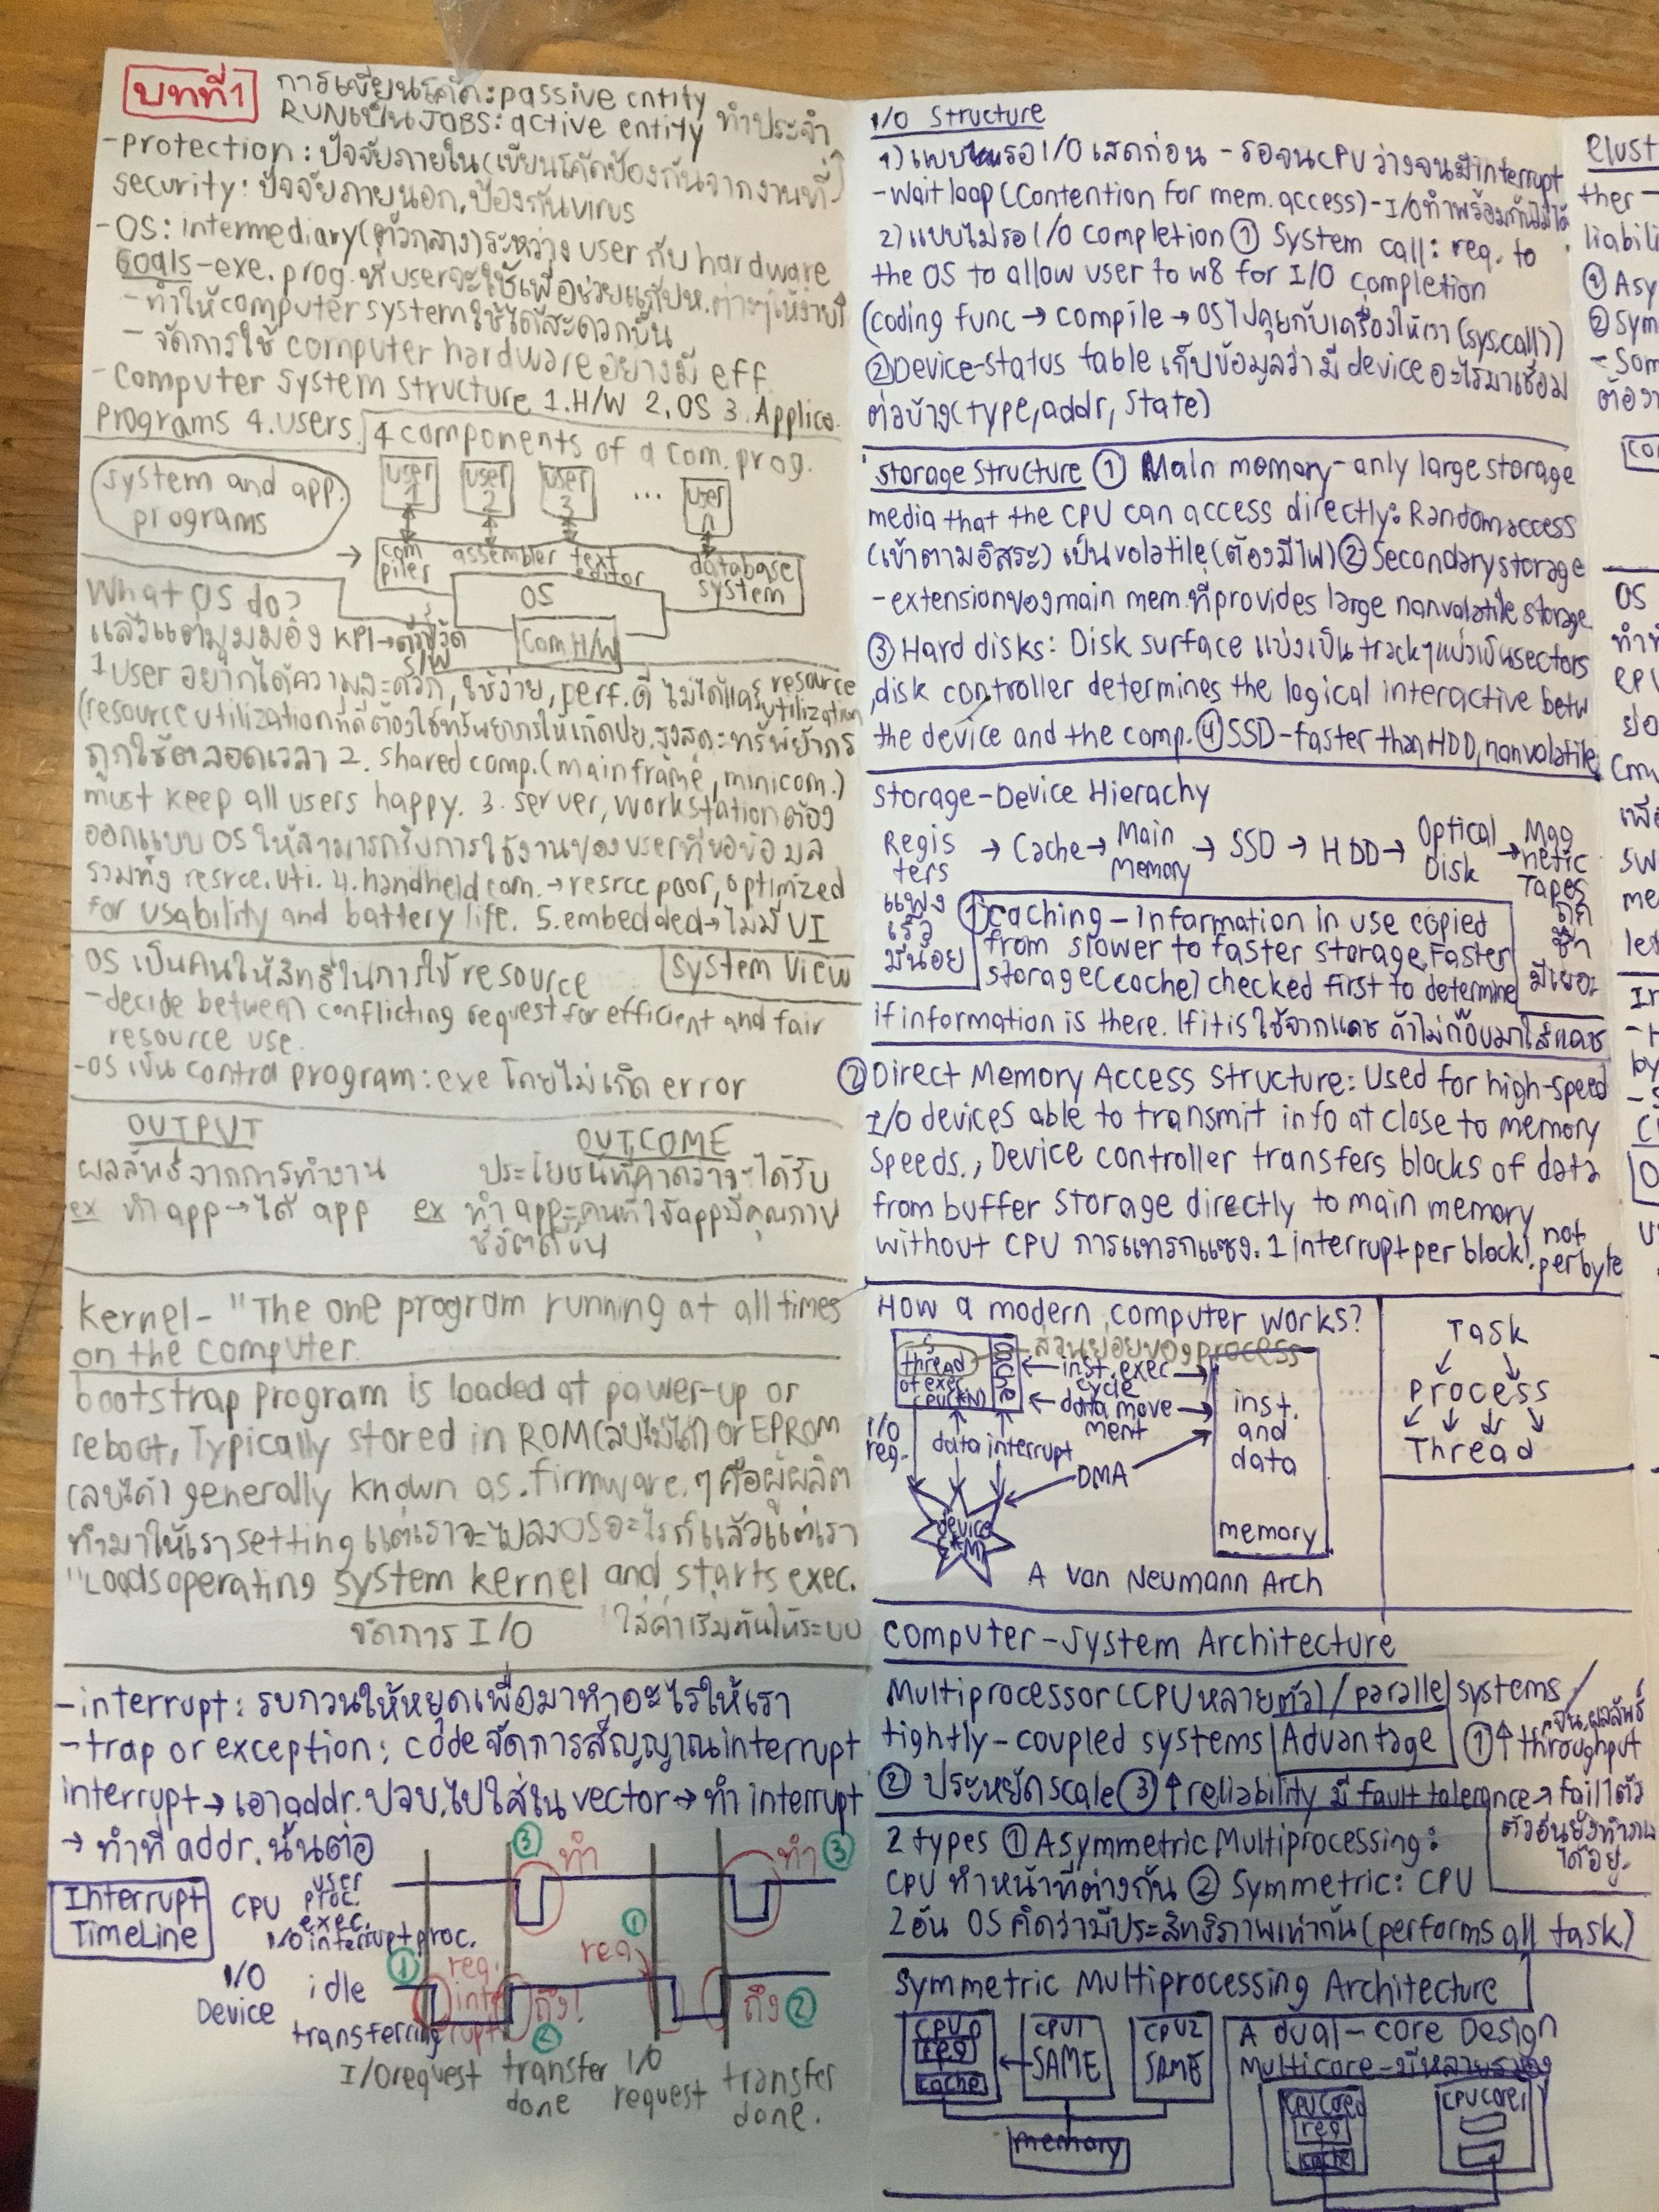 บทที่1
การเขียนโค้ด: passive entity
RUNเป็นJOBS: active entity ทำประจำ
-protection: ปัจจัยภายใน(เขียนโค้ดป้องกันจากงานที่
security: ปัจจัยภายนอก, ป้องกันvirus
-OS: intermediary(ตัวกลาง)ระหว่าง user กับ hardware
Goals-exe. prog. ที่userจะใช้เพื่อช่วยแก้ปห.ต่างๆให้ง่ายขึ้น
-ทำให้computer systemใช้ได้สะดวกขึ้น
- จัดการใช้ computer hardwareอย่างมี eff.
-Computer System Structure 1.H/W 2.OS 3.Applica.
programs 4.users.
4 components of a com. prog.
system and app.
programs
user 1
user 2
user 3
...
user n
compiler
assembler
text editor
database system
OS
Com.H/W
What OS do?
แล้วแต่มุมมอง KPI→ตัวชี้วัด
1 User อยากได้ความสะดวก, ใช้ง่าย, perf.ดี ไม่ได้แคร์ resource utilization
(resource utilizationที่ดีต้องใช้ทรัพยากรให้เกิดปย.สูงสุด=ทรัพยากร
ถูกใช้ตลอดเวลา 2. shared comp.(mainframe, minicom.)
must keep all users happy. 3. server, workstationต้อง
ออกแบบ OSให้สามารถรับการใช้งานของuserที่ขอข้อมูล
รวมทั้ง resrce.uti. 4.handheld com.→resrce poor, optimized
for usability and battery life. 5.embedded→ไม่มี UI
OS เป็นคนให้สิทธิ์ในการใช้ resource
System View
-decide between conflicting request for efficient and fair
resource use.
-OS เป็น control program: exe โดยไม่เกิด error
OUTPUT
ผลลัพธ์จากการทำงาน
ex ทำ app→ได้ app
OUTCOME
ประโยชน์ที่คาดว่าจะได้รับ
ex ทำ app=คนที่ใช้appมีคุณภาพ
ชีวิตดีขึ้น
Kernel- "The one program running at all times
on the computer
bootstrap program is loaded at power-up or
reboot, Typically stored in ROM(ลบไม่ได้) or EPROM
(ลบได้) generally known as firmware. ๆ คือผู้ผลิต
ทำมาให้เราsetting แต่เราจะไปลงOSอะไรก็แล้วแต่เรา
"Loads operating system kernel and starts exec.
จัดการ I/O
ใส่ค่าเริ่มต้นให้ระบบ
-interrupt: รบกวนให้หยุดเพื่อมาทำอะไรให้เรา
-trap or exception: codeจัดการสัญญาณinterrupt
interrupt→เอาaddr.ปจบ.ไปใส่ใน vector→ทำ interrupt
→ ทำที่ addr.นั้นต่อ
Interrupt
TimeLine
CPU
user proc. exec.
I/O interrupt proc.
③ ทำ
ทำ ③
I/O
Device
idle
transferring
① req. interrupt
ถึง! ②
① req.
ถึง ②
I/O request
transfer done
I/O request
transfer done.
I/O Structure
-รอจนCPU ว่างจนมีinterrupt
-Wait loop(Contention for mem.access)-I/Oทำพร้อมกันไม่ได้
2)แบบไม่รอ I/O completion ① System call: req. to
the OS to allow user to w8 for I/O completion
(coding func → compile → OSไปคุยกับเครื่องให้เรา (sys.call))
②Device-status table เก็บข้อมูลว่ามี device อะไรมาเชื่อม
ต่อบ้าง(type, addr, state)
Storage Structure ① Main memory-only large storage
media that the CPU can access directly: Random access
(เข้าตามอิสระ) เป็นvolatile(ต้องมีไฟ)②Secondary storage
-extensionของmain mem.ที่provides large nonvolatile storage
③ Hard disks: Disk surface แบ่งเป็น trackๆแบ่งเป็นsectors
,disk controller determines the logical interactive betw
the device and the comp. ④SSD-faster than HDD, nonvolatile
Storage-Device Hierachy
Registers → Cache → Main Memory → SSD → HDD → Optical Disk → Magnetic Tapes
แพง
เร็ว
มีน้อย
ถูก
ช้า
มีเยอะ
①Caching - Information in use copied
from slower to faster storage, Faster
storage(cache) checked first to determine
if information is there. If it is ใช้จากแคช ถ้าไม่ก๊อบมาใส่แคช
②Direct Memory Access Structure: Used for high-speed
I/O devices able to transmit info at close to memory
speeds., Device controller transfers blocks of data
from buffer storage directly to main memory
without CPU การแทรกแซง. 1 interrupt per block!, not per byte
How a modern computer works?
ส่วนย่อยของprocess
thread of exec
CPU(*N)
cache
inst. exec cycle
data movement
I/O req.
data
interrupt
DMA
device (*M)
inst. and data
memory
A Von Neumann Arch
Task
Process
Thread
Computer-System Architecture
Multiprocessor(CPUหลายตัว)/parallel systems/
tightly-coupled systems Advantage ①↑throughput
ผลลัพธ์
② ประหยัด scale ③↑reliability มี fault tolerance→fail1ตัว
ตัวอื่นยังทำงาน
ได้อยู่.
2 types ①Asymmetric Multiprocessing:
CPU ทำหน้าที่ต่างกัน ② Symmetric: CPU
2อัน OS คิดว่ามีประสิทธิภาพเท่ากัน(performs all task)
Symmetric Multiprocessing Architecture
CPU0
reg
cache
CPU1
SAME
CPU2
SAME
memory
A dual-core Design
CPU core0
reg
cache
CPU core1